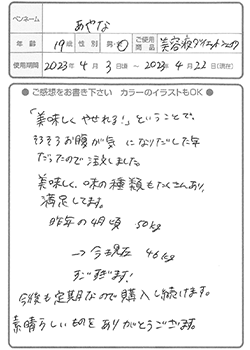 ペンネーム あやな
年齢 19歳 性別 男・○ ご使用商品 美容液ダイエットシェイク
使用期間 2023年4月3日頃〜2023年4月22日(現在)
● ご感想をお書き下さい カラーのイラストもOK ●
「美味しくやせれる!」ということで、
そろそろお腹が気になりだした年
だったので注文しました。
美味しく、味の種類もたくさんあり、
満足してます。
昨年の4月頃 50kg
→今現在 46kg
すごすぎます!
今後も定期なので購入し続けます。
素晴らしいものをありがとうございます。